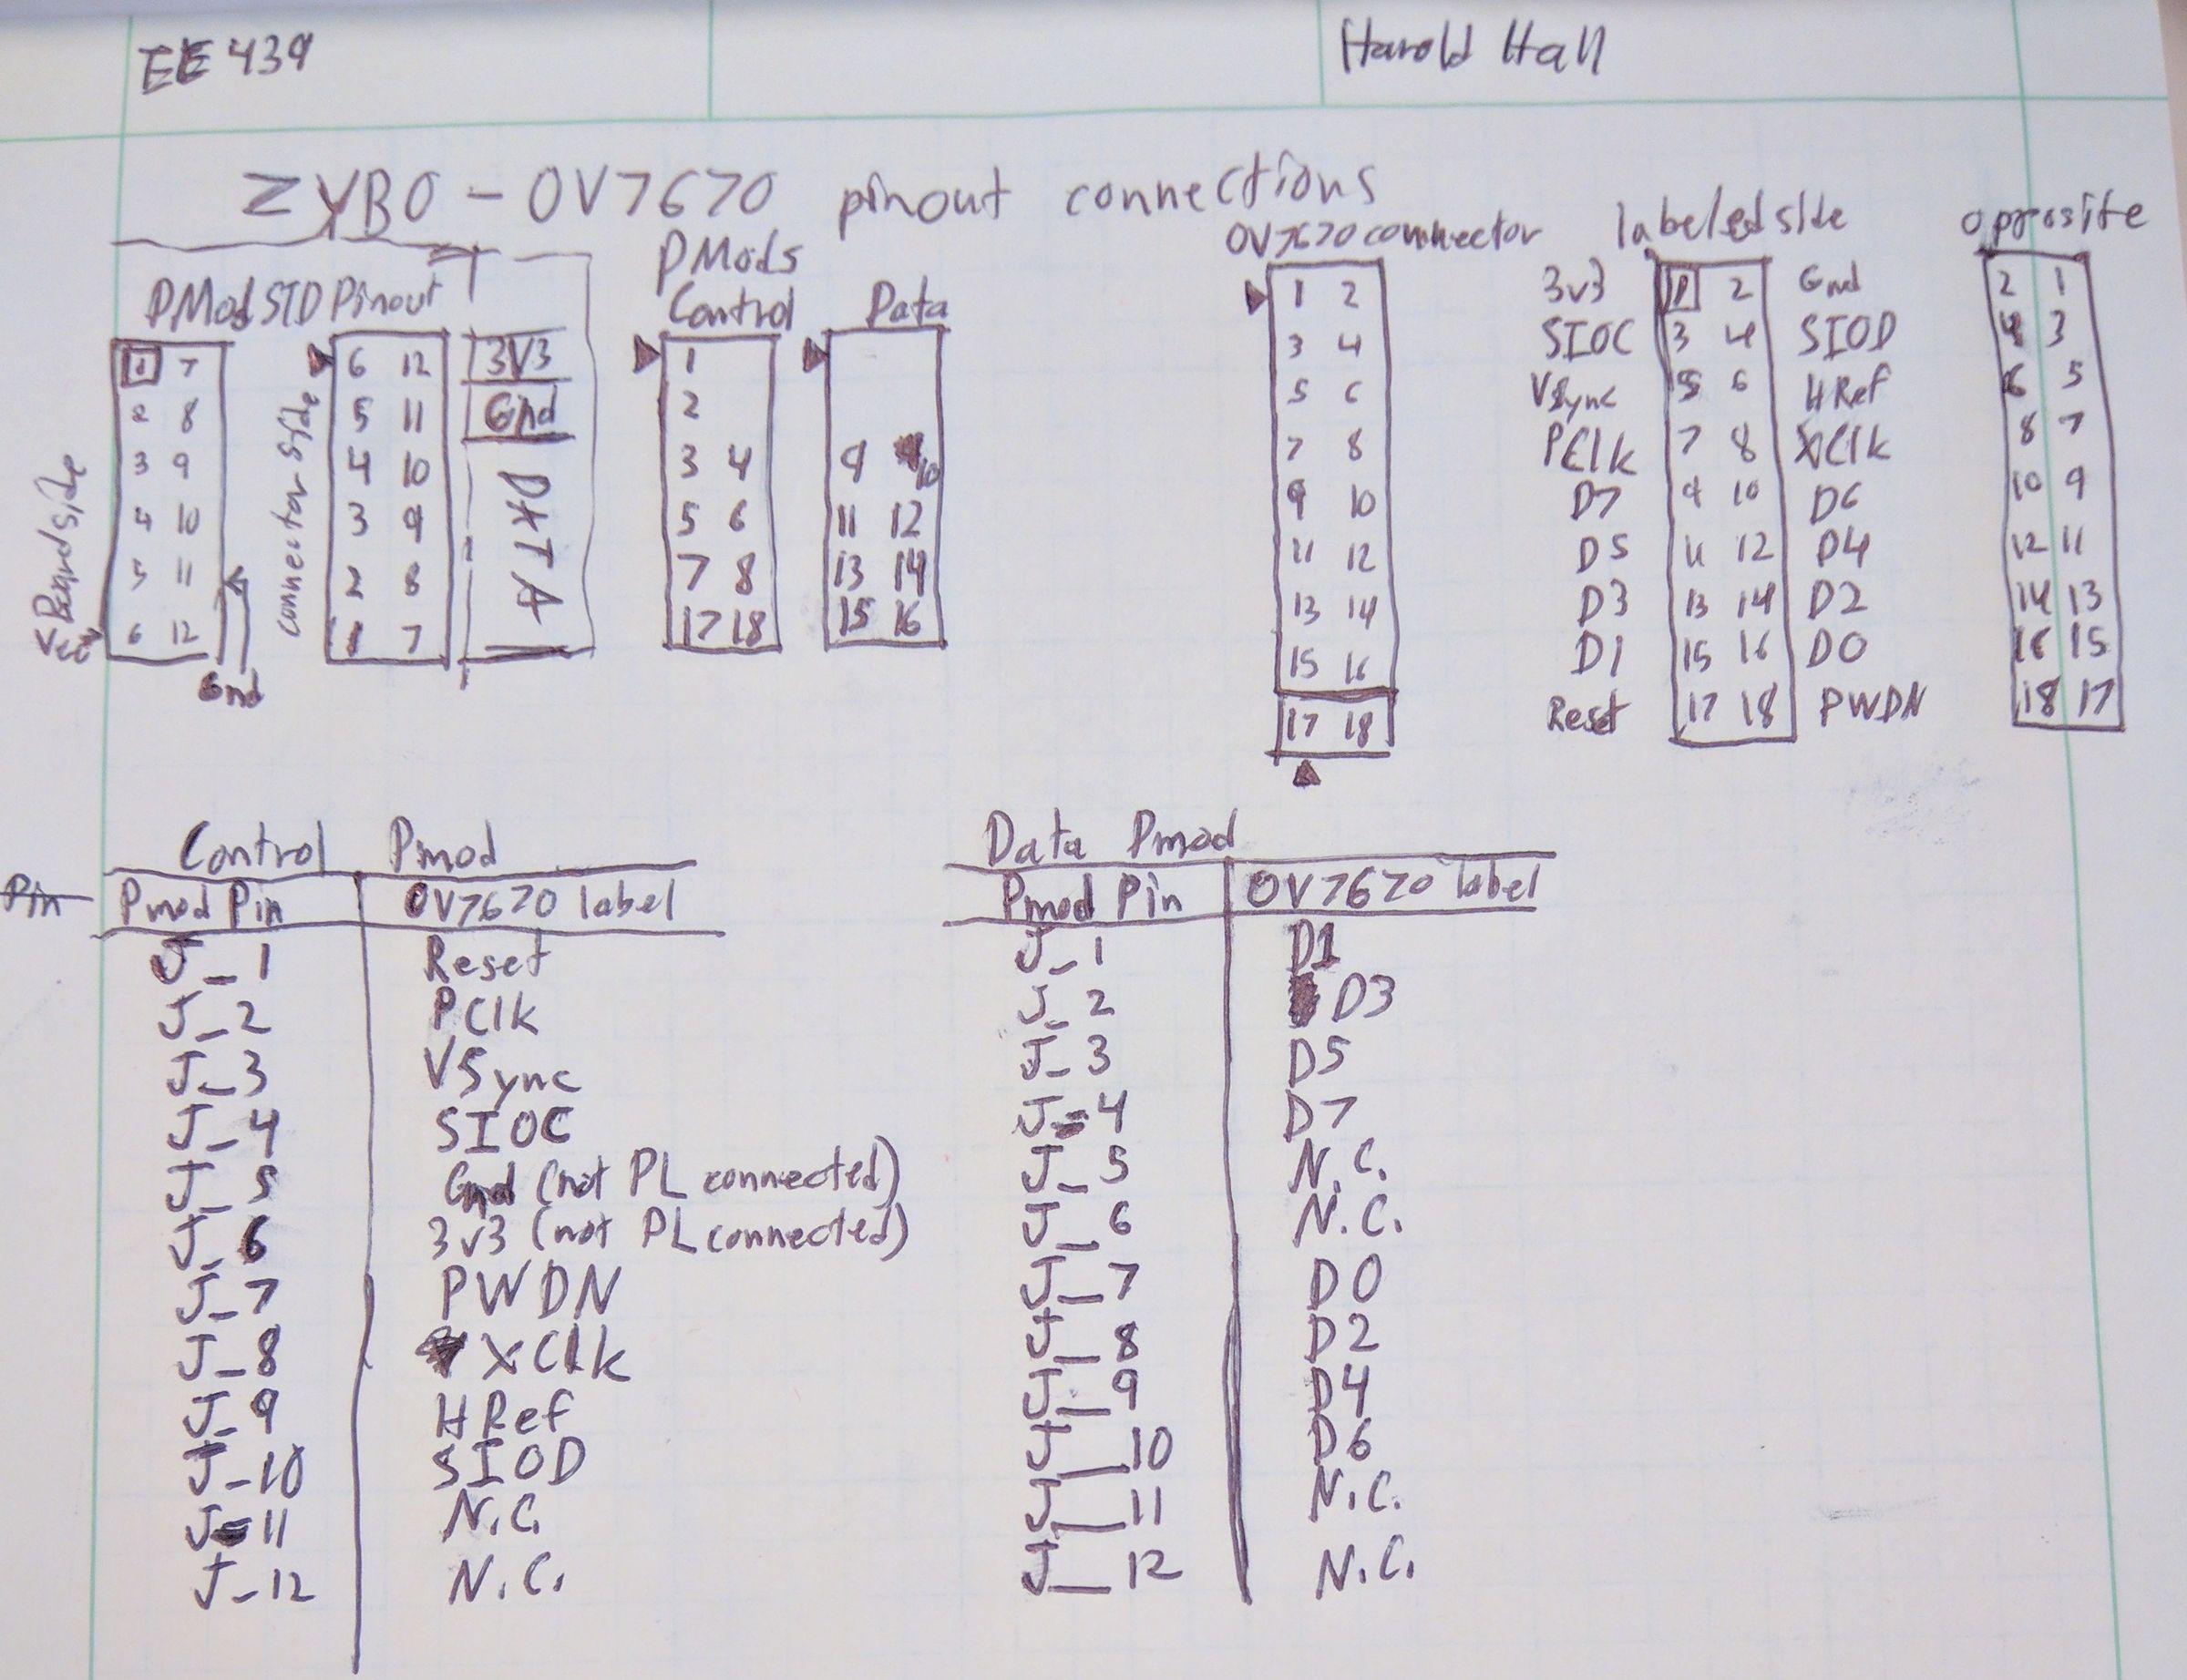 EE 439
Harold Hall
ZYBO - OV7670 pinout connections
PMod STD Pinout
1 7
2 8
3 9
4 10
5 11
6 12
Board side
Gnd
connector side
6 12
5 11
4 10
3 9
2 8
1 7
3V3
Gnd
DATA
PMods
Control
1
2
3 4
5 6
7 8
17 18
Data
9 10
11 12
13 14
15 16
OV7670 connector
1 2
3 4
5 6
7 8
9 10
11 12
13 14
15 16
17 18
labeled side
3v3 1 2 Gnd
SIOC 3 4 SIOD
VSync 5 6 HRef
PClk 7 8 XClk
D7 9 10 D6
D5 11 12 D4
D3 13 14 D2
D1 15 16 D0
Reset 17 18 PWDN
opposite
2 1
4 3
6 5
8 7
10 9
12 11
14 13
16 15
18 17
Control Pmod
Pin Pmod Pin OV7670 label
J_1 Reset
J_2 PClk
J_3 VSync
J_4 SIOC
J_5 Gnd (not PL connected)
J_6 3v3 (not PL connected)
J_7 PWDN
J_8 XClk
J_9 HRef
J_10 SIOD
J_11 N.C.
J_12 N.C.
Data Pmod
Pmod Pin OV7670 label
J_1 D1
J_2 D3
J_3 D5
J_4 D7
J_5 N.C.
J_6 N.C.
J_7 D0
J_8 D2
J_9 D4
J_10 D6
J_11 N.C.
J_12 N.C.